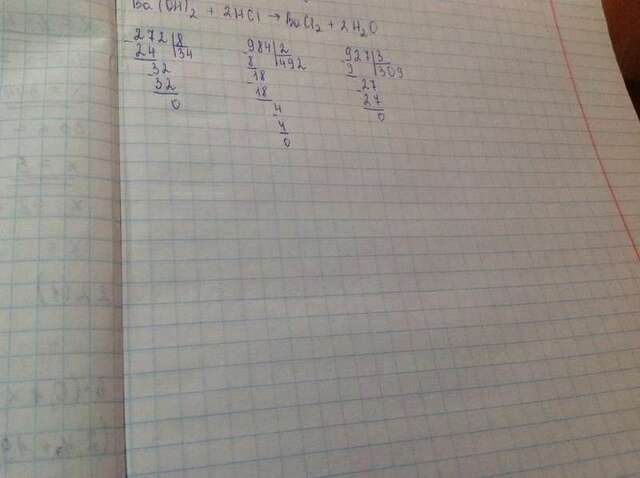 Ba(OH)2 + 2HCl → BaCl2 + 2H2O
272 8
24 34
32
32
0
984 2
8 492
18
18
4
4
0
927 3
9 309
27
27
0